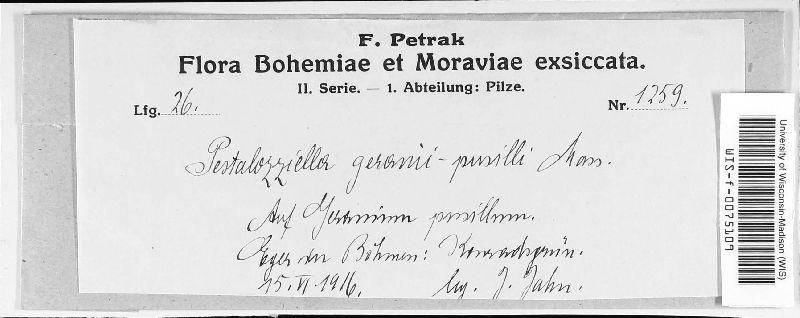 F. Petrak
Flora Bohemiae et Moraviae exsiccata.
II. Serie. — 1. Abteilung: Pilze.
Lfg. 26.
Nr. 1259.
Pestalozziella geranii-pusilli Mass.
Auf Geranium pusillum.
Eger in Böhmen: Konradsgrün.
15. VI. 1916. leg. J. Jahn.
University of Wisconsin-Madison (WIS)
WIS-f-0075109